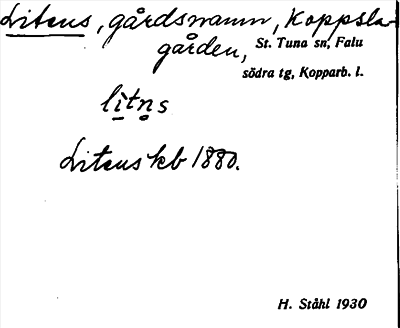 Litens, gårdsnamn, Koppsla-
gården, St. Tuna sn, Falu
södra tg, Kopparb. l.
lì̠tn̥s
Litens kb 1880.
H. Ståhl 1930